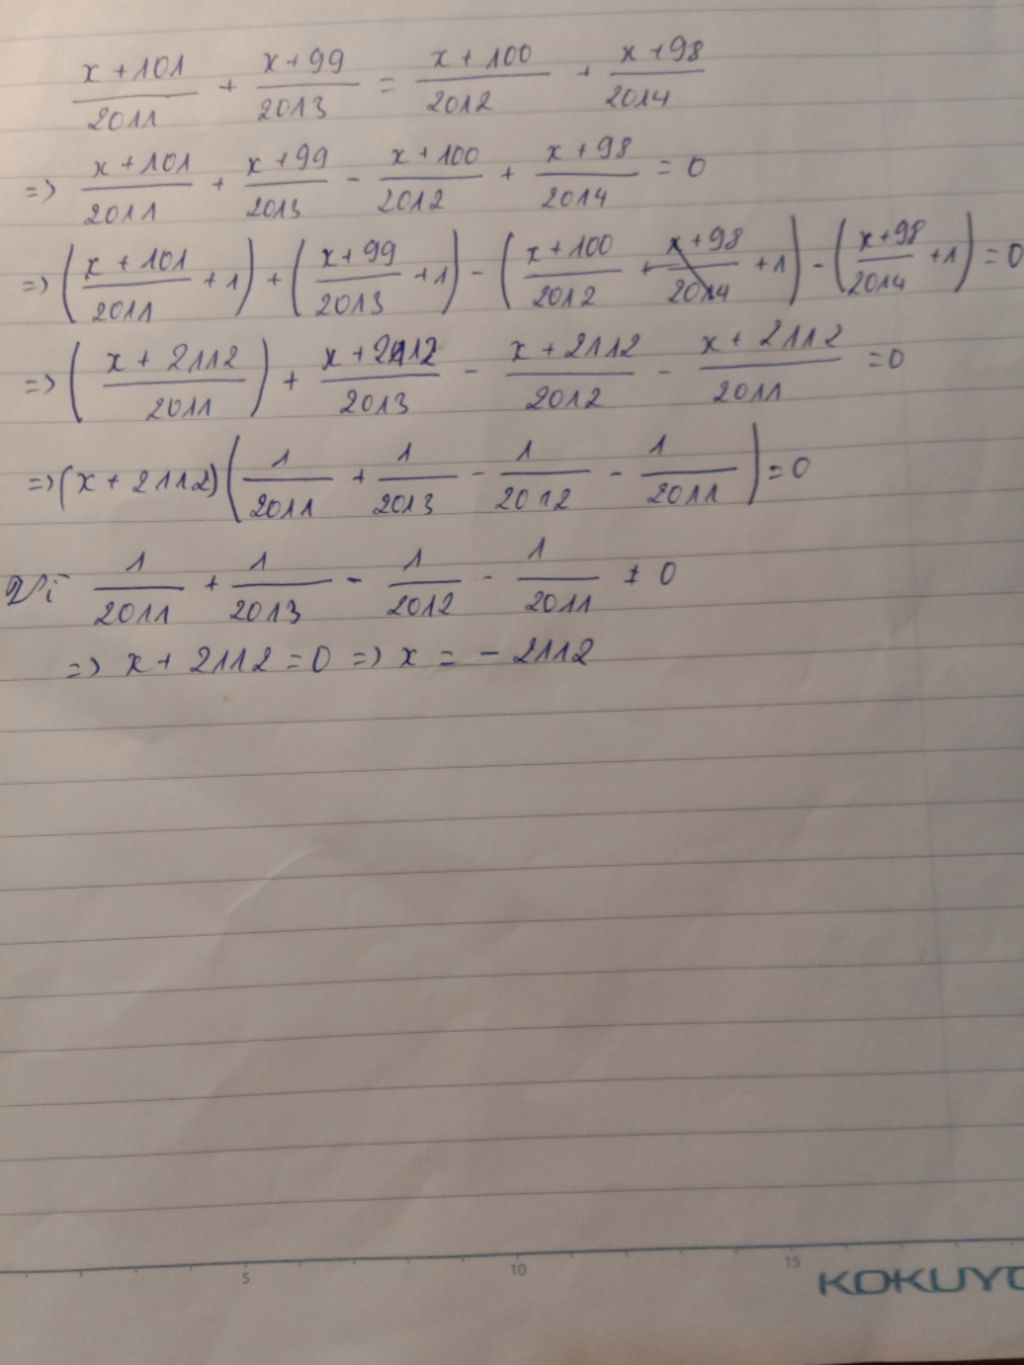 x+101/2011 + x+99/2013 = x+100/2012 + x+98/2014
=> x+101/2011 + x+99/2013 - x+100/2012 + x+98/2014 = 0
=> (x+101/2011 +1) + (x+99/2013 +1) - (x+100/2012 + x+98/2014 +1) - (x+98/2014 +1) = 0
=> (x+2112/2011) + x+2112/2013 - x+2112/2012 - x+2112/2011 = 0
=> (x+2112)(1/2011 + 1/2013 - 1/2012 - 1/2011) = 0
Vì 1/2011 + 1/2013 - 1/2012 - 1/2011 ≠ 0
=> x+2112=0 => x = -2112
5 10 15
KOKUYO